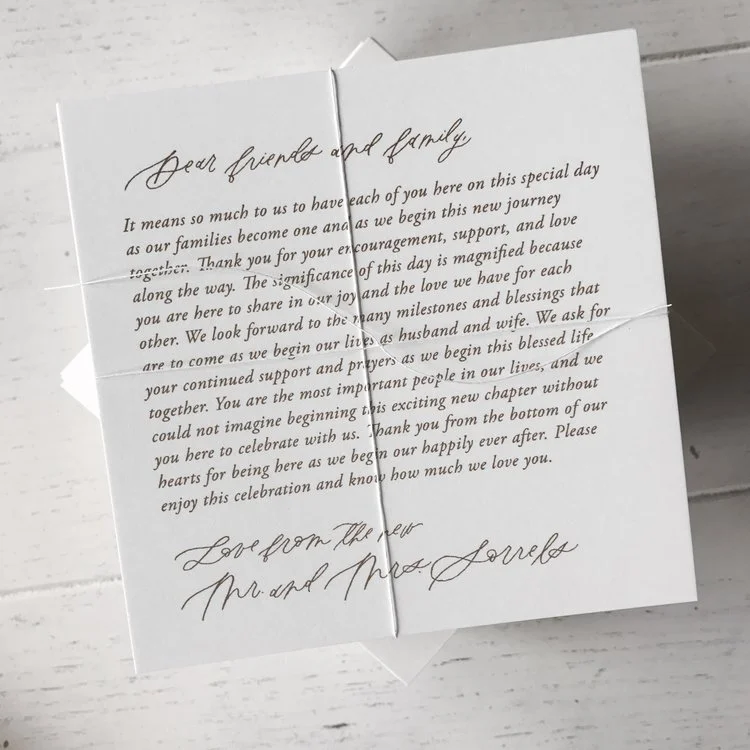 Dear friends and family,
It means so much to us to have each of you here on this special day
as our families become one and as we begin this new journey
together. Thank you for your encouragement, support, and love
along the way. The significance of this day is magnified because
you are here to share in our joy and the love we have for each
other. We look forward to the many milestones and blessings that
are to come as we begin our lives as husband and wife. We ask for
your continued support and prayers as we begin this blessed life
together. You are the most important people in our lives, and we
could not imagine beginning this exciting new chapter without
you here to celebrate with us. Thank you from the bottom of our
hearts for being here as we begin our happily ever after. Please
enjoy this celebration and know how much we love you.
Love from the new
Mr. and Mrs. Sorrels